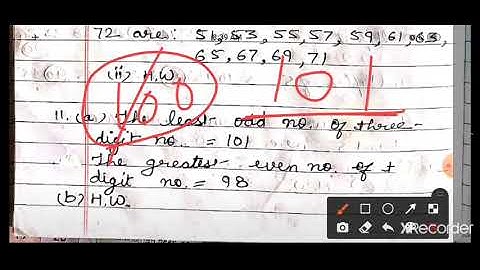 72 are: 51, 53, 55, 57, 59, 61, 63,
65, 67, 69, 71
(ii) H.W.
100
101
11. (a) The least odd no. of three-
digit no. = 101
The greatest even no. of
digit no. = 98
(b) H.W.
XRecorder